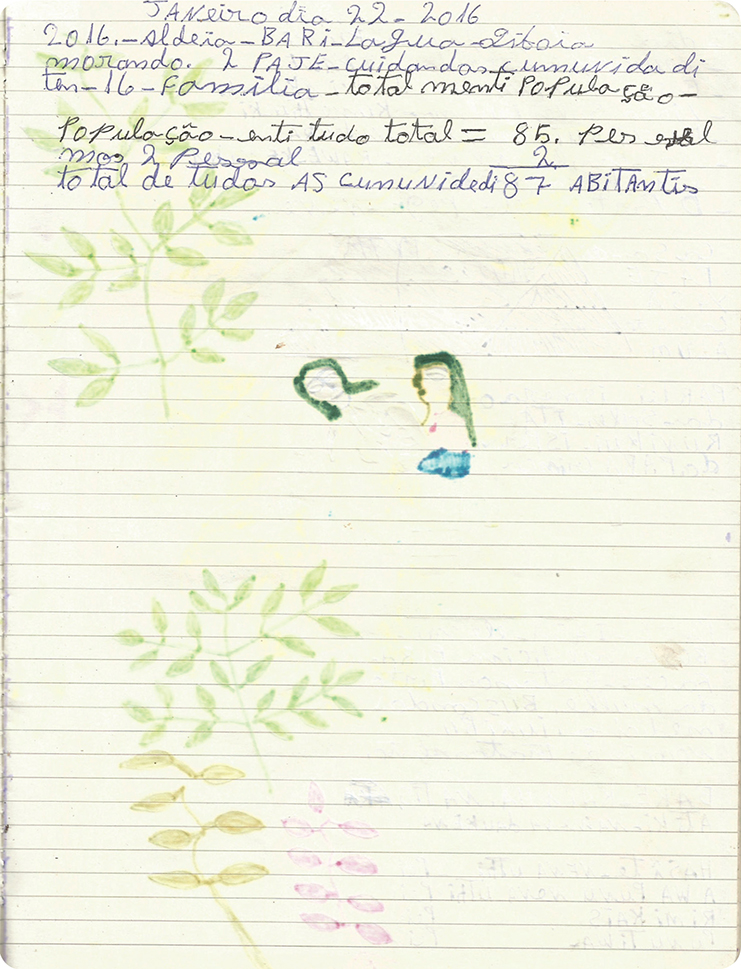 JANeiro dia 22 - 2016
2016.- Aldeia - BARi - Lagua - Jiboia
morando. 2 PAJE - cuidandos cumunida di
ten - 16 - Familia - total menti Popula ção -
População - enti tudo total = 85. Pes soal
mas 2 Pesoal 2
total de tudas AS cumunidedi 87 ABiTAntis